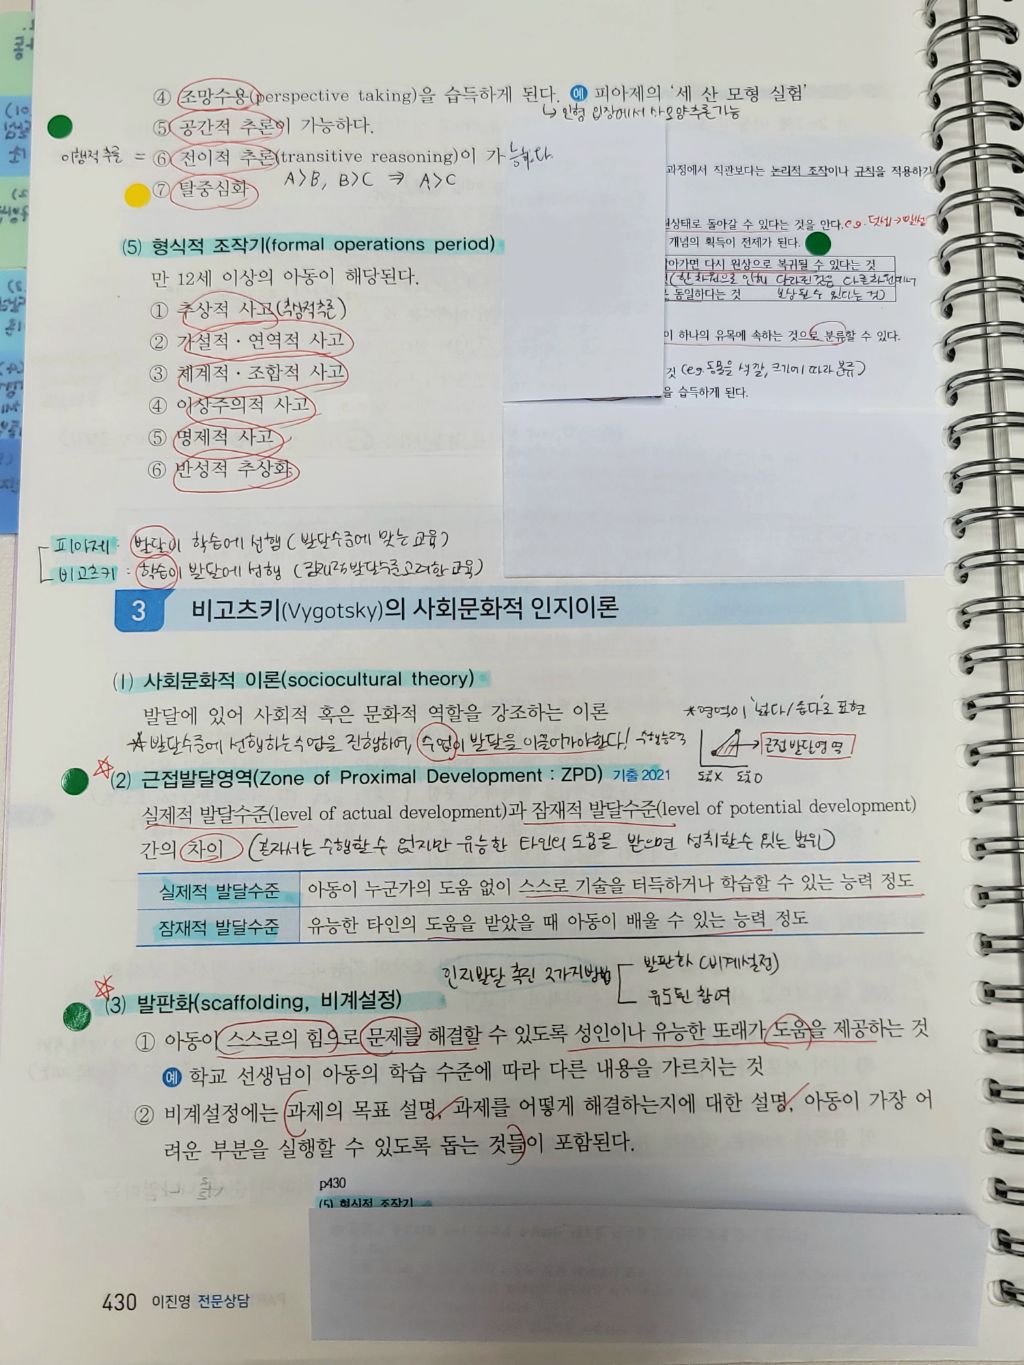 ④ 조망수용(perspective taking)을 습득하게 된다. 예 피아제의 '세 산 모형 실험'
↳ 인형 입장에서 산모양추론가능
⑤ 공간적 추론이 가능하다.
이행적추론 = ⑥ 전이적 추론(transitive reasoning)이 가능하다.
A>B, B>C ⇒ A>C
⑦ 탈중심화
과정에서 직관보다는 논리적 조작이나 규칙을 적용하기
원상태로 돌아갈 수 있다는 것을 안다. e.g. 덧셈→뺄셈
개념의 획득이 전제가 된다.
아가면 다시 원상으로 복귀될 수 있다는 것
(한차원으로 인해 달라진것은 다른차원에서
동일하다는 것 보상될 수 있다는 것)
이 하나의 유목에 속하는 것으로 분류할 수 있다.
것 (e.g 도형을 색깔, 크기에 따라 분류)
을 습득하게 된다.
(5) 형식적 조작기(formal operations period)
만 12세 이상의 아동이 해당된다.
① 추상적 사고
② 가설적·연역적 사고
③ 체계적·조합적 사고
④ 이상주의적 사고
⑤ 명제적 사고
⑥ 반성적 추상화
피아제 : 발달이 학습에 선행 (발달수준에 맞는 교육)
비고츠키 : 학습이 발달에 선행 (잠재적발달수준고려한교육)
3 비고츠키(Vygotsky)의 사회문화적 인지이론
(1) 사회문화적 이론(sociocultural theory)
발달에 있어 사회적 혹은 문화적 역할을 강조하는 이론
*영역이 '넓다/좁다'로 표현
☆발달수준에 선행하는수업을 진행하여, 수업이 발달을 이끌어가야한다!
수행능력
근접발달영역
도움X 도움O
(2) 근접발달영역(Zone of Proximal Development : ZPD) 기출 2021
실제적 발달수준(level of actual development)과 잠재적 발달수준(level of potential development)
간의 차이 (혼자서는 수행할수 없지만 유능한 타인의 도움을 받으면 성취할수 있는 범위)
실제적 발달수준 아동이 누군가의 도움 없이 스스로 기술을 터득하거나 학습할 수 있는 능력 정도
잠재적 발달수준 유능한 타인의 도움을 받았을 때 아동이 배울 수 있는 능력 정도
인지발달 촉진 2가지방법
발판화 (비계설정)
유도된 참여
(3) 발판화(scaffolding, 비계설정)
① 아동이 스스로의 힘으로 문제를 해결할 수 있도록 성인이나 유능한 또래가 도움을 제공하는 것
예 학교 선생님이 아동의 학습 수준에 따라 다른 내용을 가르치는 것
② 비계설정에는 과제의 목표 설명, 과제를 어떻게 해결하는지에 대한 설명, 아동이 가장 어
려운 부분을 실행할 수 있도록 돕는 것들이 포함된다.
p430
(5) 형식적 조작기
430 이진영 전문상담